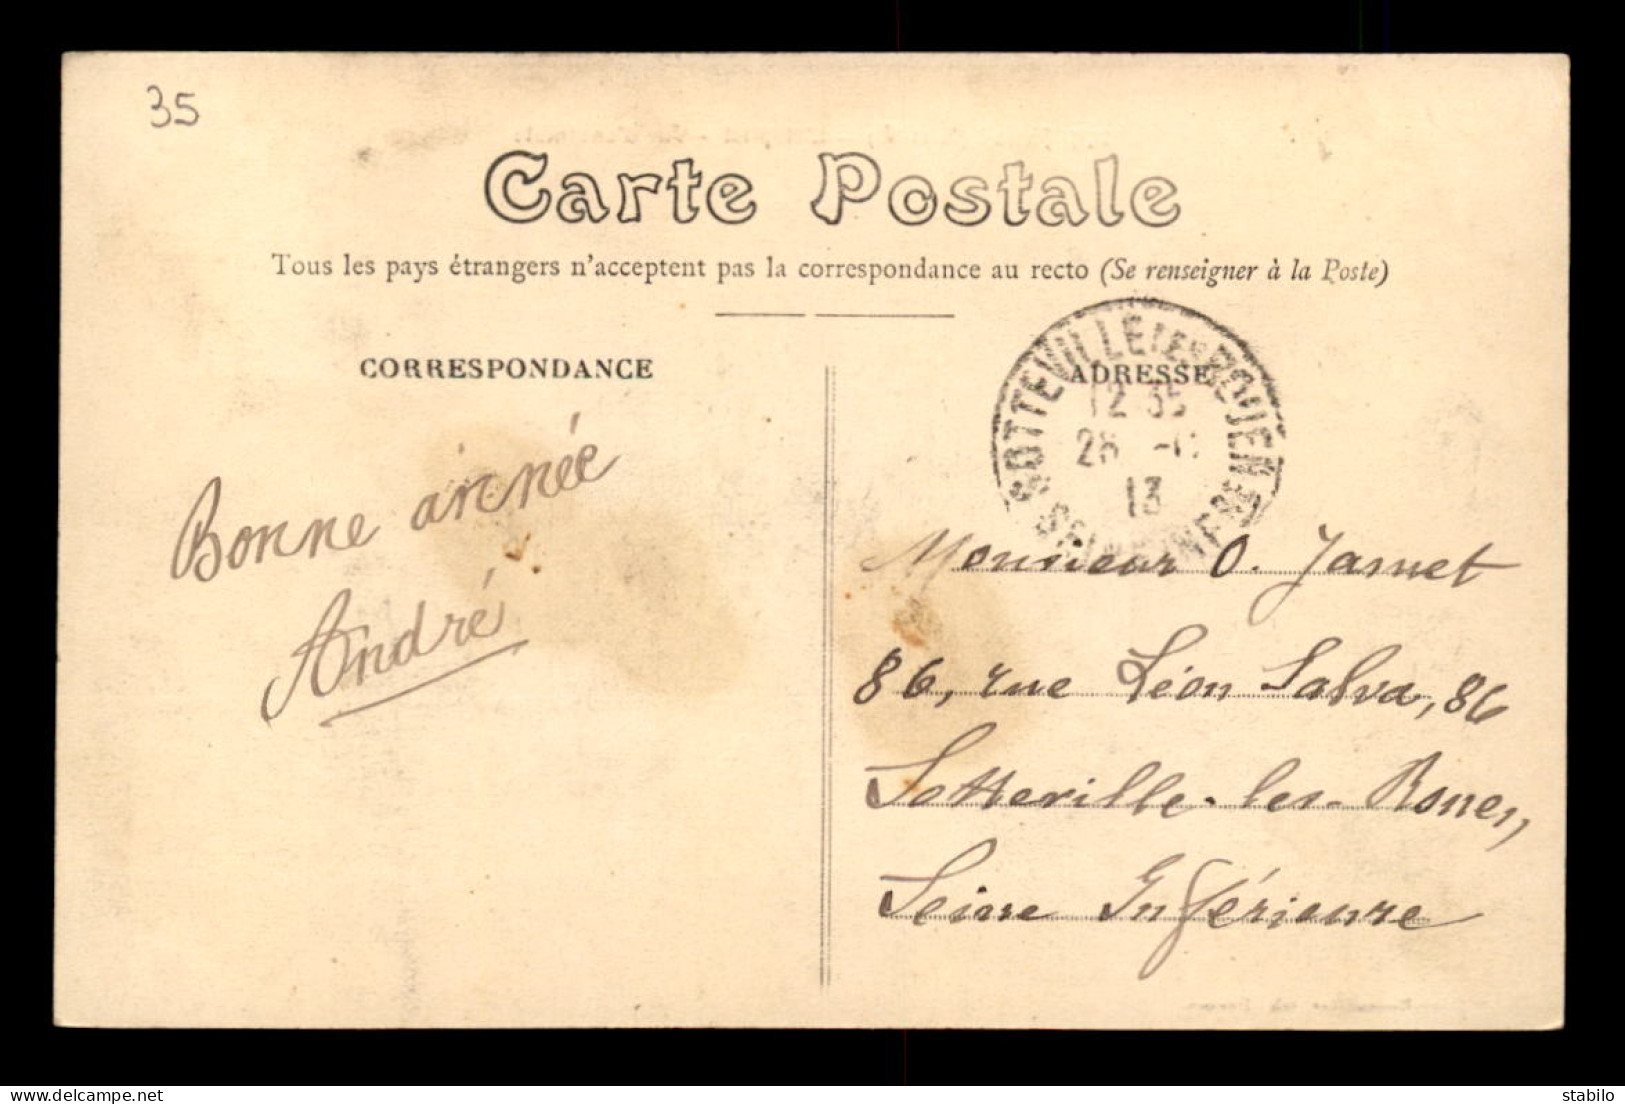 35
Carte Postale
Tous les pays étrangers n'acceptent pas la correspondance au recto (Se renseigner à la Poste)
CORRESPONDANCE
Bonne année
André
ADRESSE
SOTTEVILLE LES ROUEN
12 35
13
Monsieur O. Jamet
86, rue Léon Salva, 86
Sotteville-les-Rouen,
Seine Inférieure
www.delcampe.net
stabilo